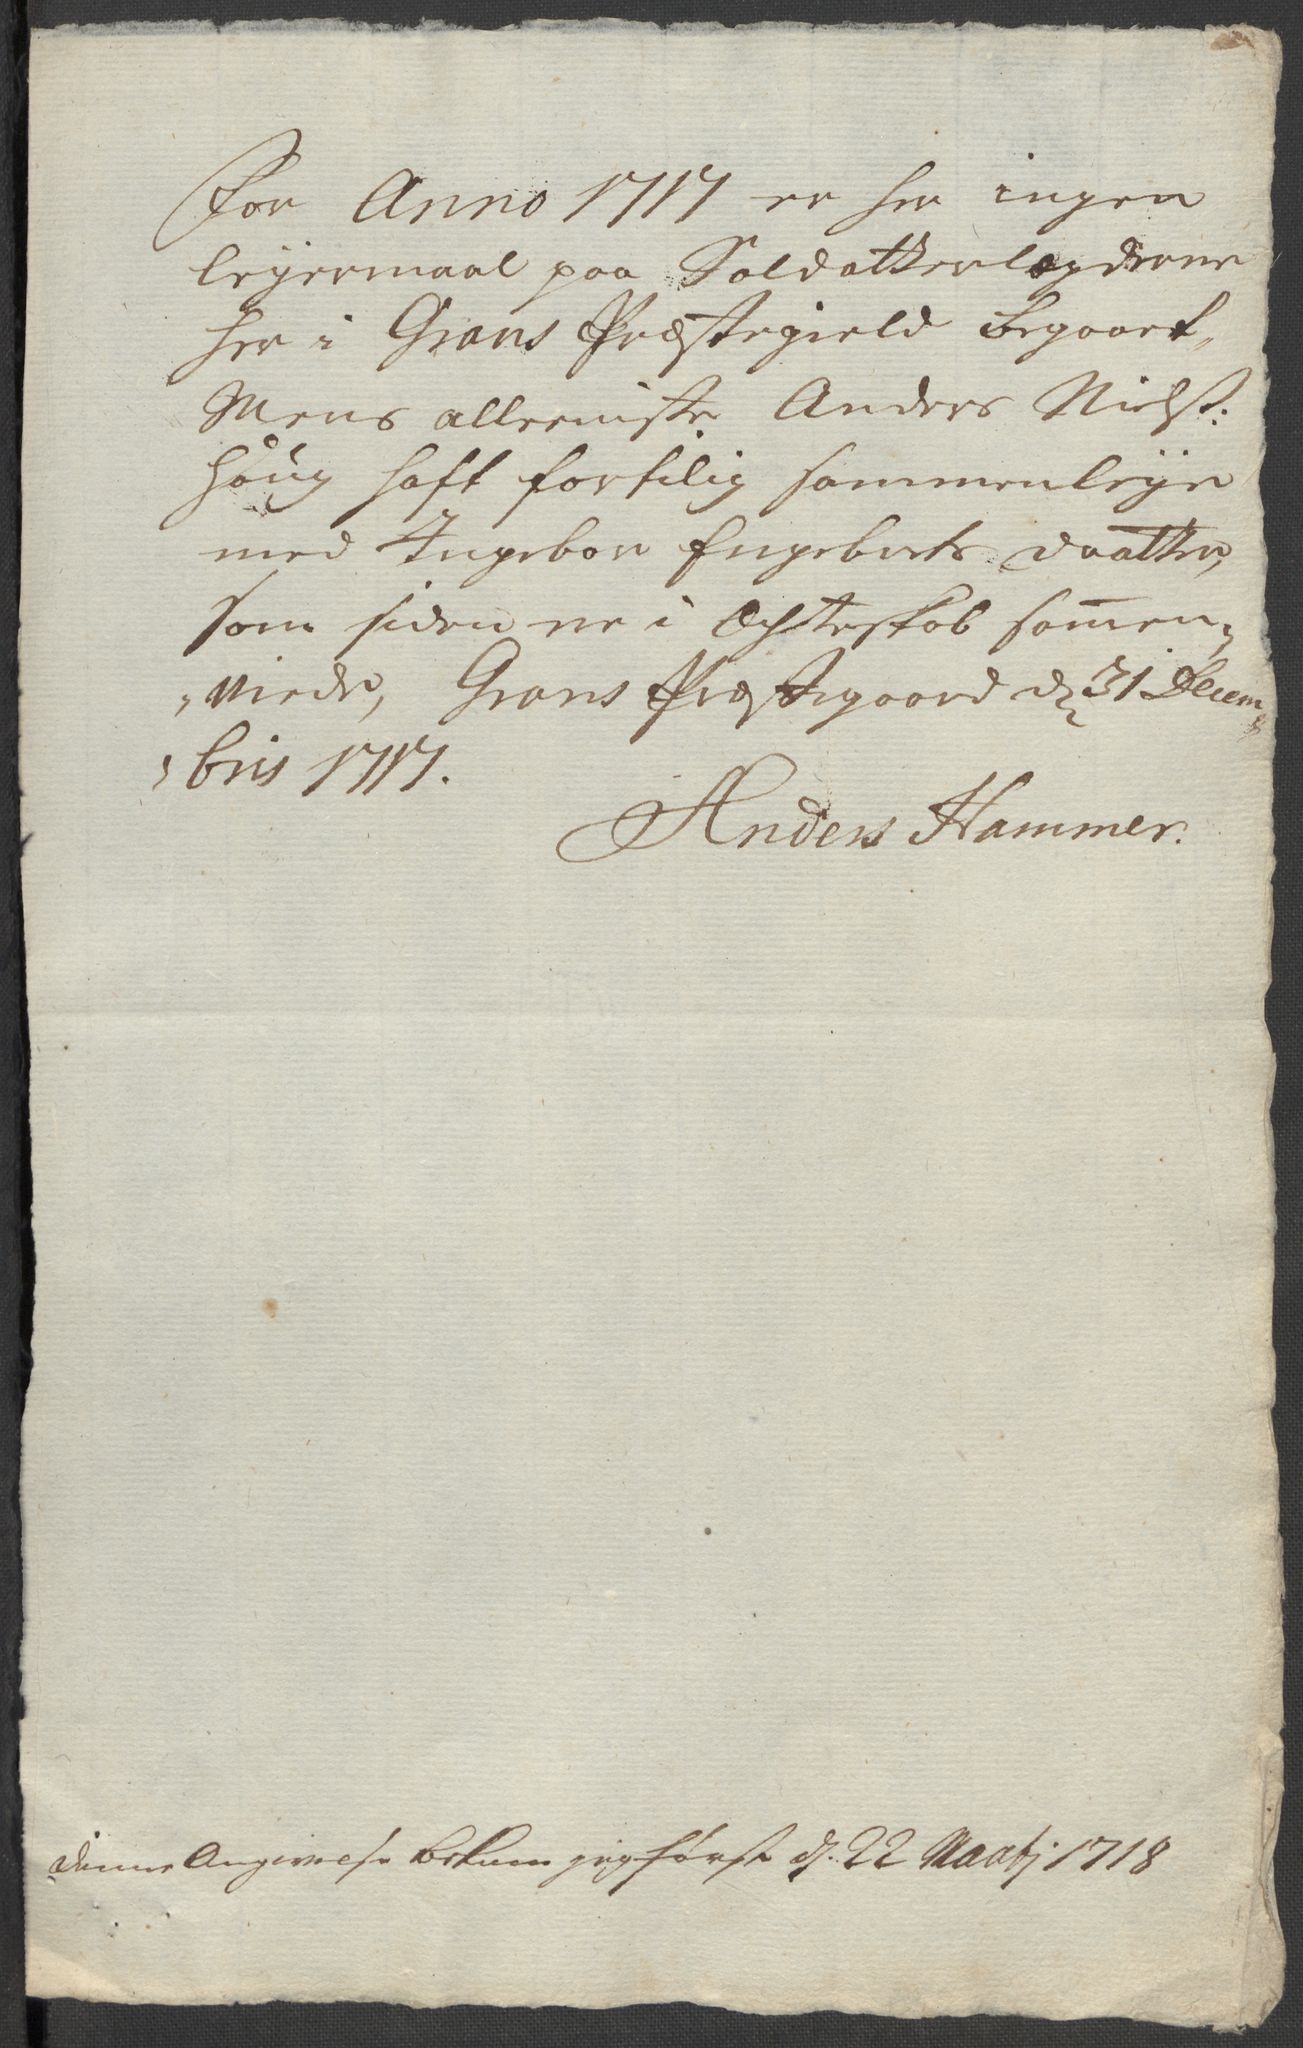 For Anno 1717 er her ingen
leyermaal paa Soldatterlægderne
her i Grans Præstegield begaaet,
Mens alleeniste Anders Nielss:
Houg haft fortilig sammenleye
med Ingebor Engebrets daatter,
som siden er i Ægteskab sam̄en„
„viede, Grans Præstegaard d. 31 Decem„
„bris 1717.
Anders Hammer.
denne Angivelse bekom jeg først d. 22 Martij 1718